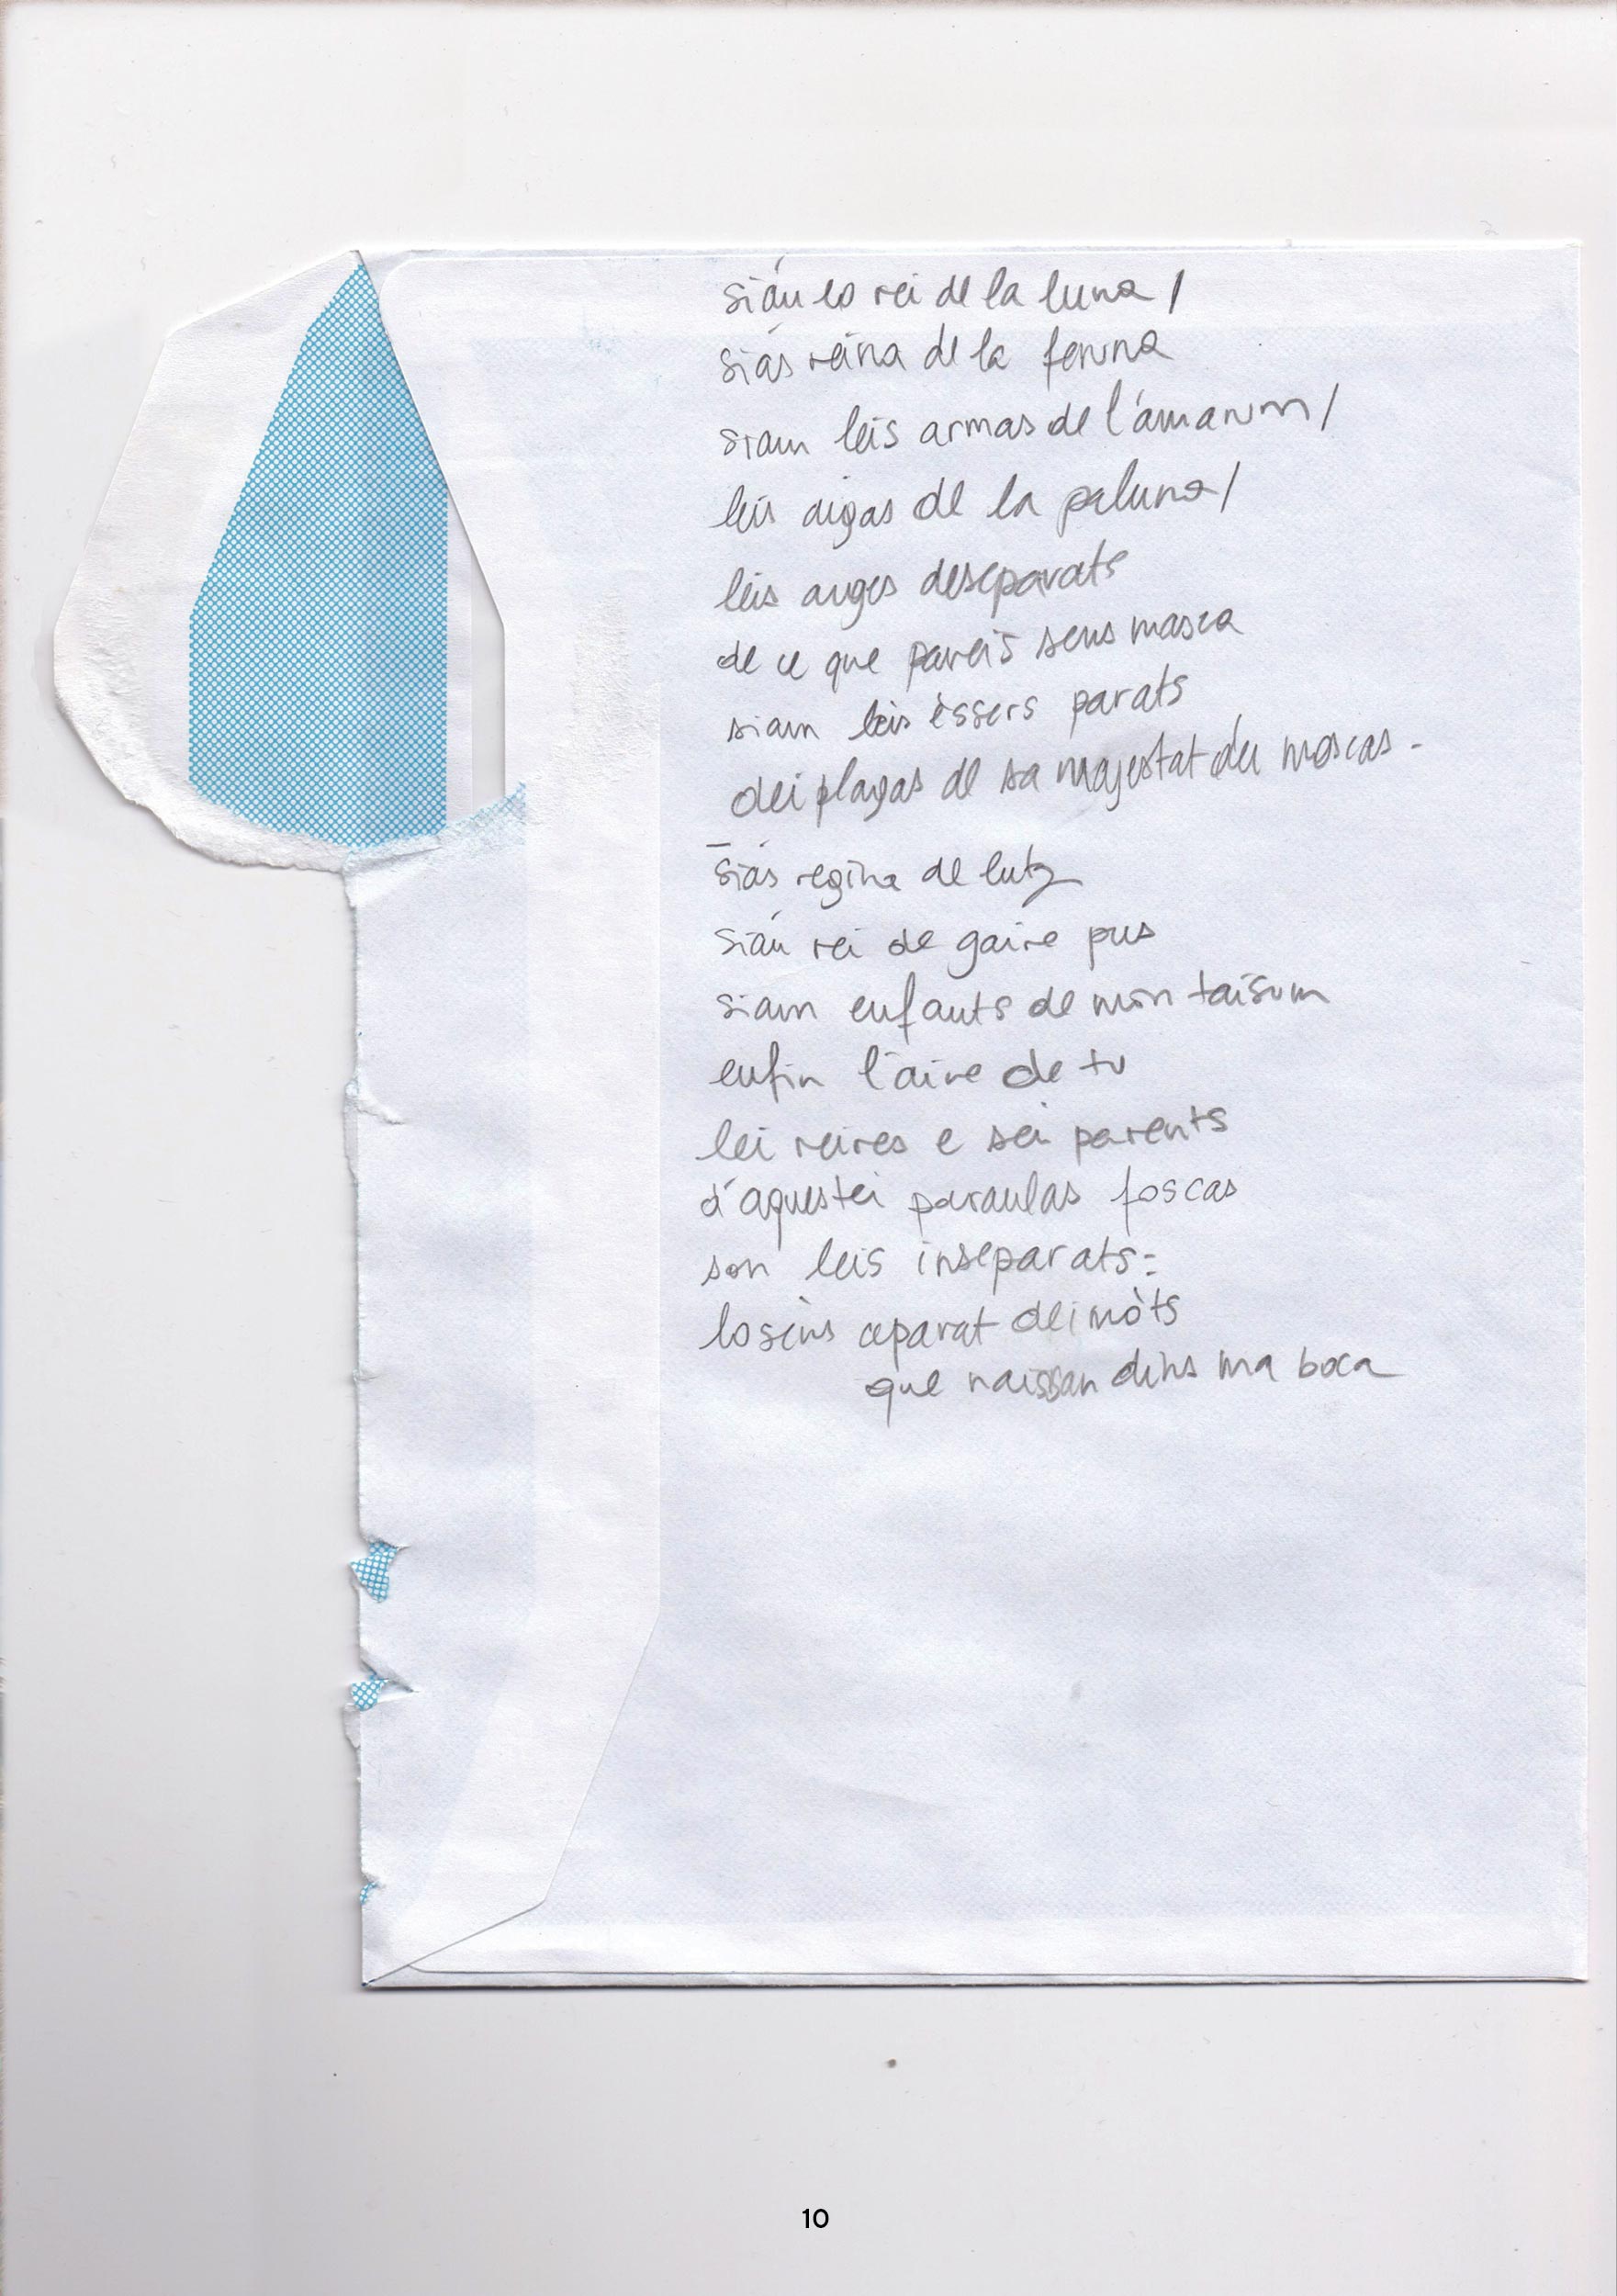 siáu lo rei de la luna /
siás reina de la feruna
siam leis armas de l'amarum /
leis aigas de la paluna /
leis anges deseparats
de ce que pareis sens masca
siam leis èssers parats
dei plagas de sa majestat dei moscas -
– siás regina de lutz
siáu rei de gaire pus
siam enfants de mon taisum
enfin l'aire de tu
lei reires e sei parents
d'aquestei paraulas foscas
son leis inseparats:
lo sèns aparat dei mòts
que naissan dins ma boca
10